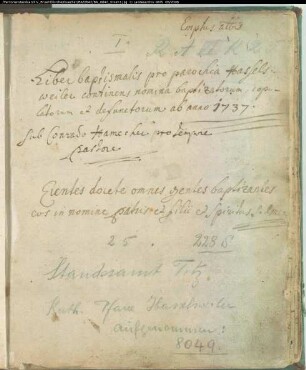 I.
Liber baptismalis pro parochia Hassels-
weiler continens nomina baptizatorum copu-
latorum et defunctorum ab anno 1737.
Sub Conrado Hamecher pro tempore
Pastore
Euntes docete omnes gentes baptizantes
eos in nomine patris et filii et spiritus
25.
Standesamt Titz.
Kath. Pfarre Hasselweiler
aufgenommen:
8049.